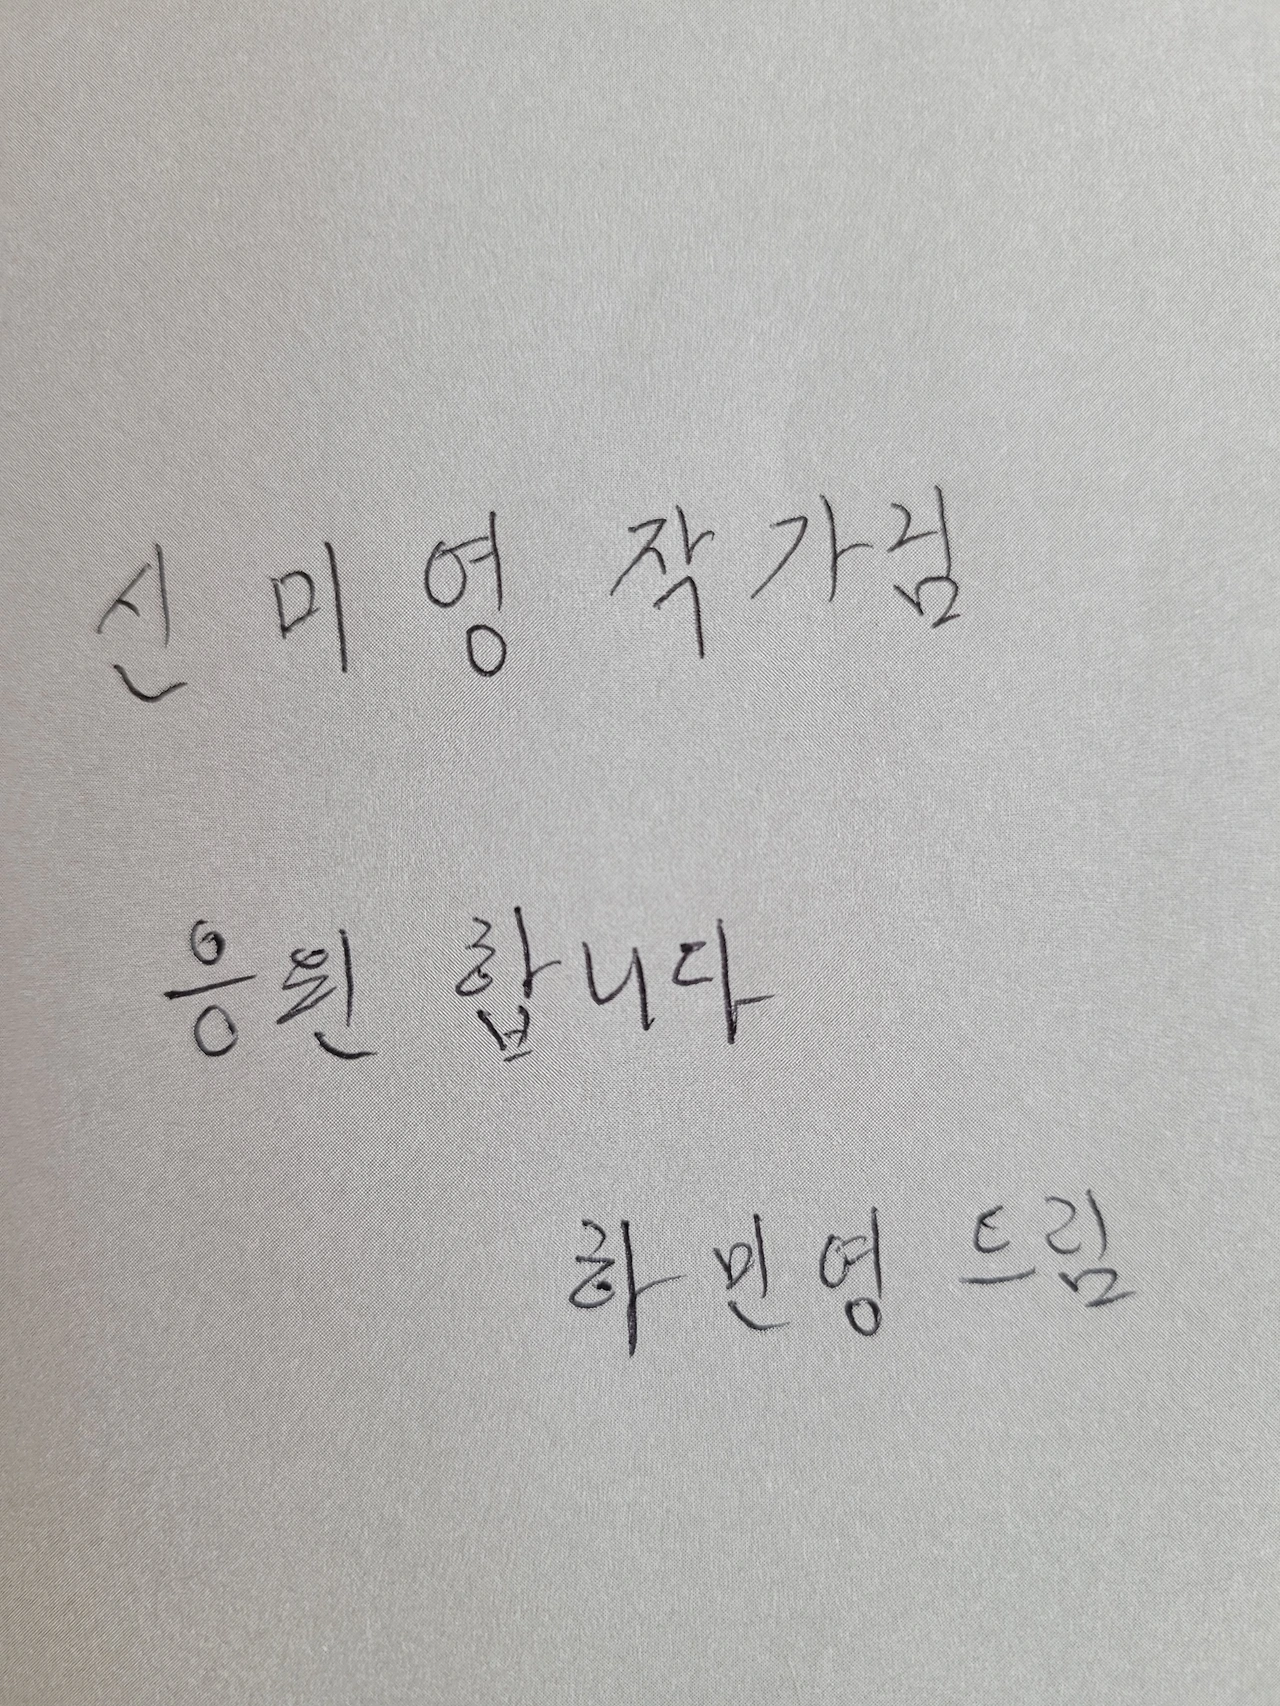 신미영 작가님
응원 합니다
하민영 드림